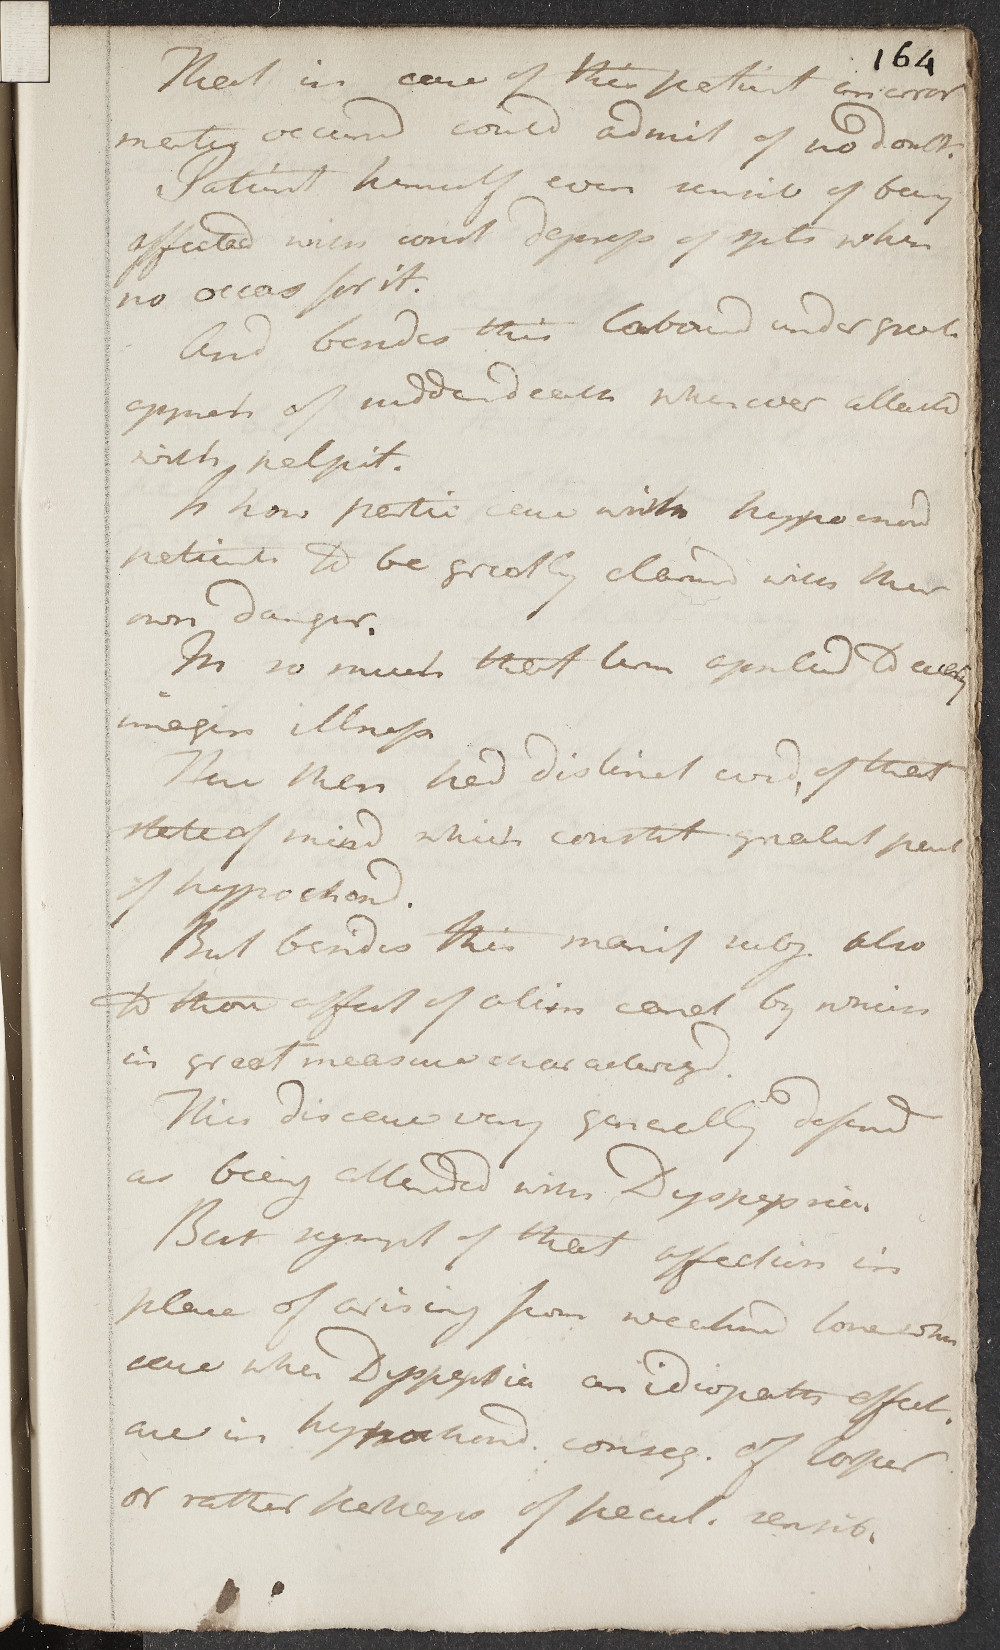 164
That in case of this patient an error
mentis occurred could admit of no doubt.
Patient himself even sensib of being
affected with const depress of spts when
no occas for it.
And besides this labourd under great
appreh of sudden death whenever attackd
with palpit.
how partic case with hypochond
patients to be greatly alarmd with their
own danger.
In so much that term applied to every
imagin illness
Here then had distinct evid, of that
state of mind which constit greatest part
of hypochond.
But besides this manif subj. also
to those affect of alim canal by which
in great measure characterizd.
This disease very generally defend
as being attended with Dyspepsia.
But sympt of that affection in
place of arising from weakend tone when
case when Dyspepsia an idiopath affect.
are in hypochond. conseq. of torper
or rather perhaps of pecul. sensib.